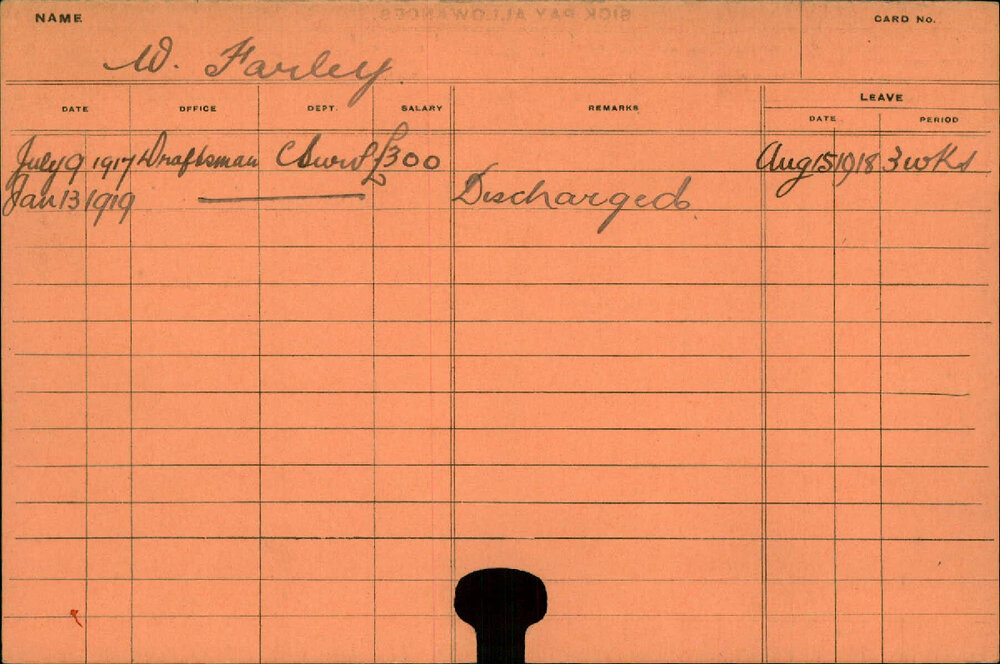 NAME
CARD No.
W. Farley
DATE OFFICE DEPT. SALARY REMARKS LEAVE
DATE PERIOD
July 9 1917 Draftsman £300 Aug 15 1918 3 wks
Jan 13 1919 Discharged
SICK PAY ALLOWANCES.